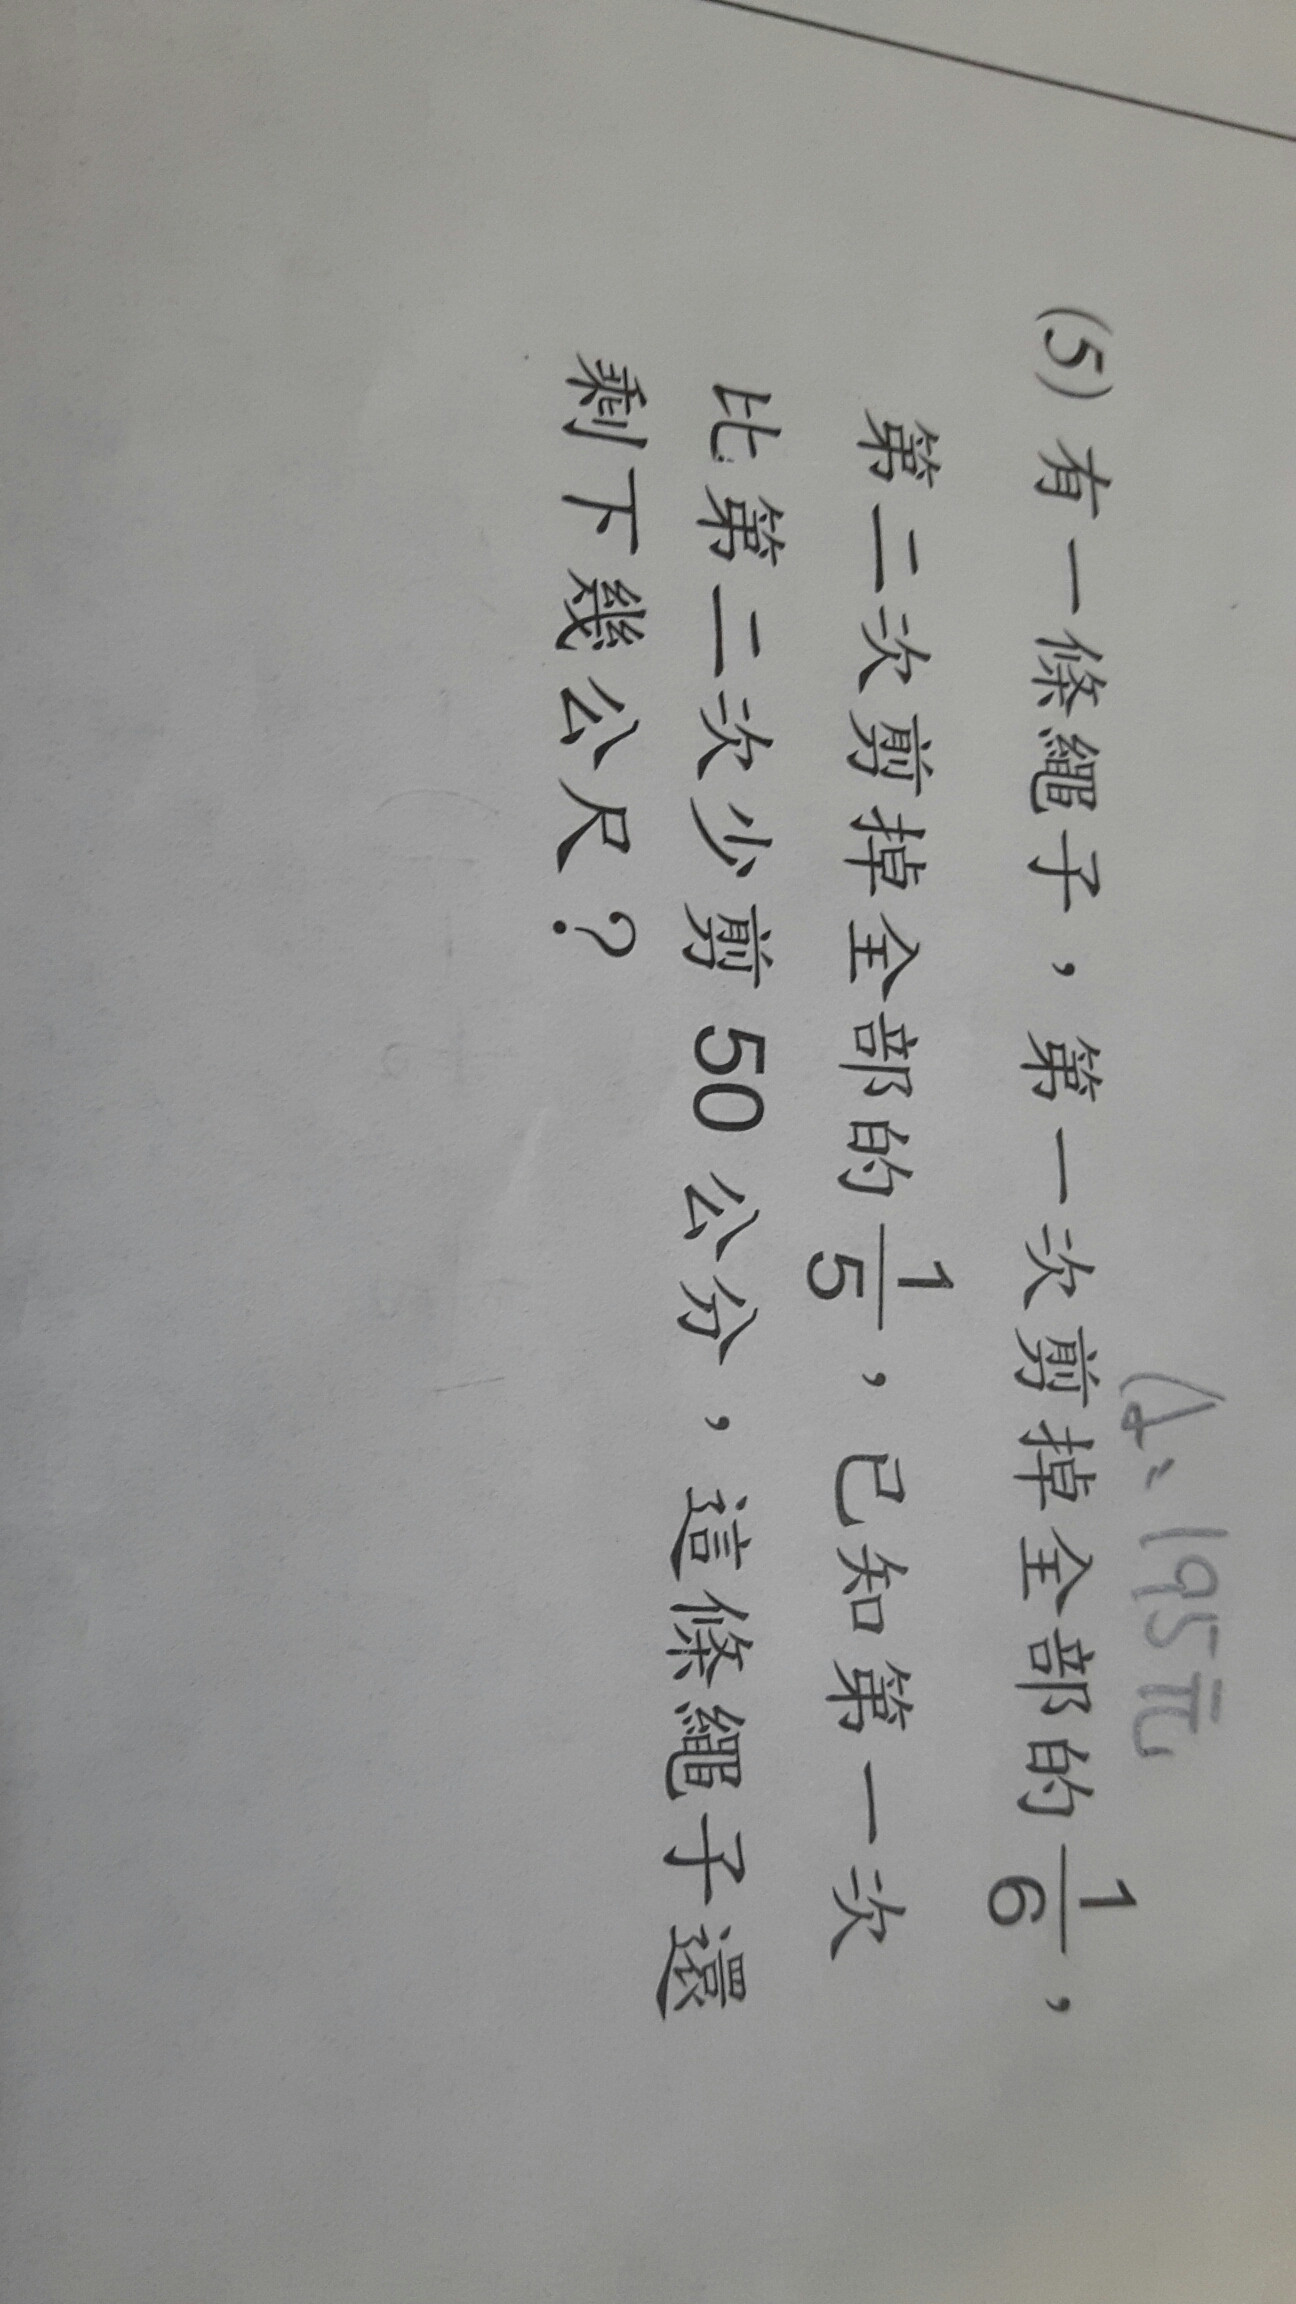 A、195元
(5) 有一條繩子，第一次剪掉全部的 1/6，
第二次剪掉全部的 1/5，已知第一次
比第二次少剪 50 公分，這條繩子還
剩下幾公尺？